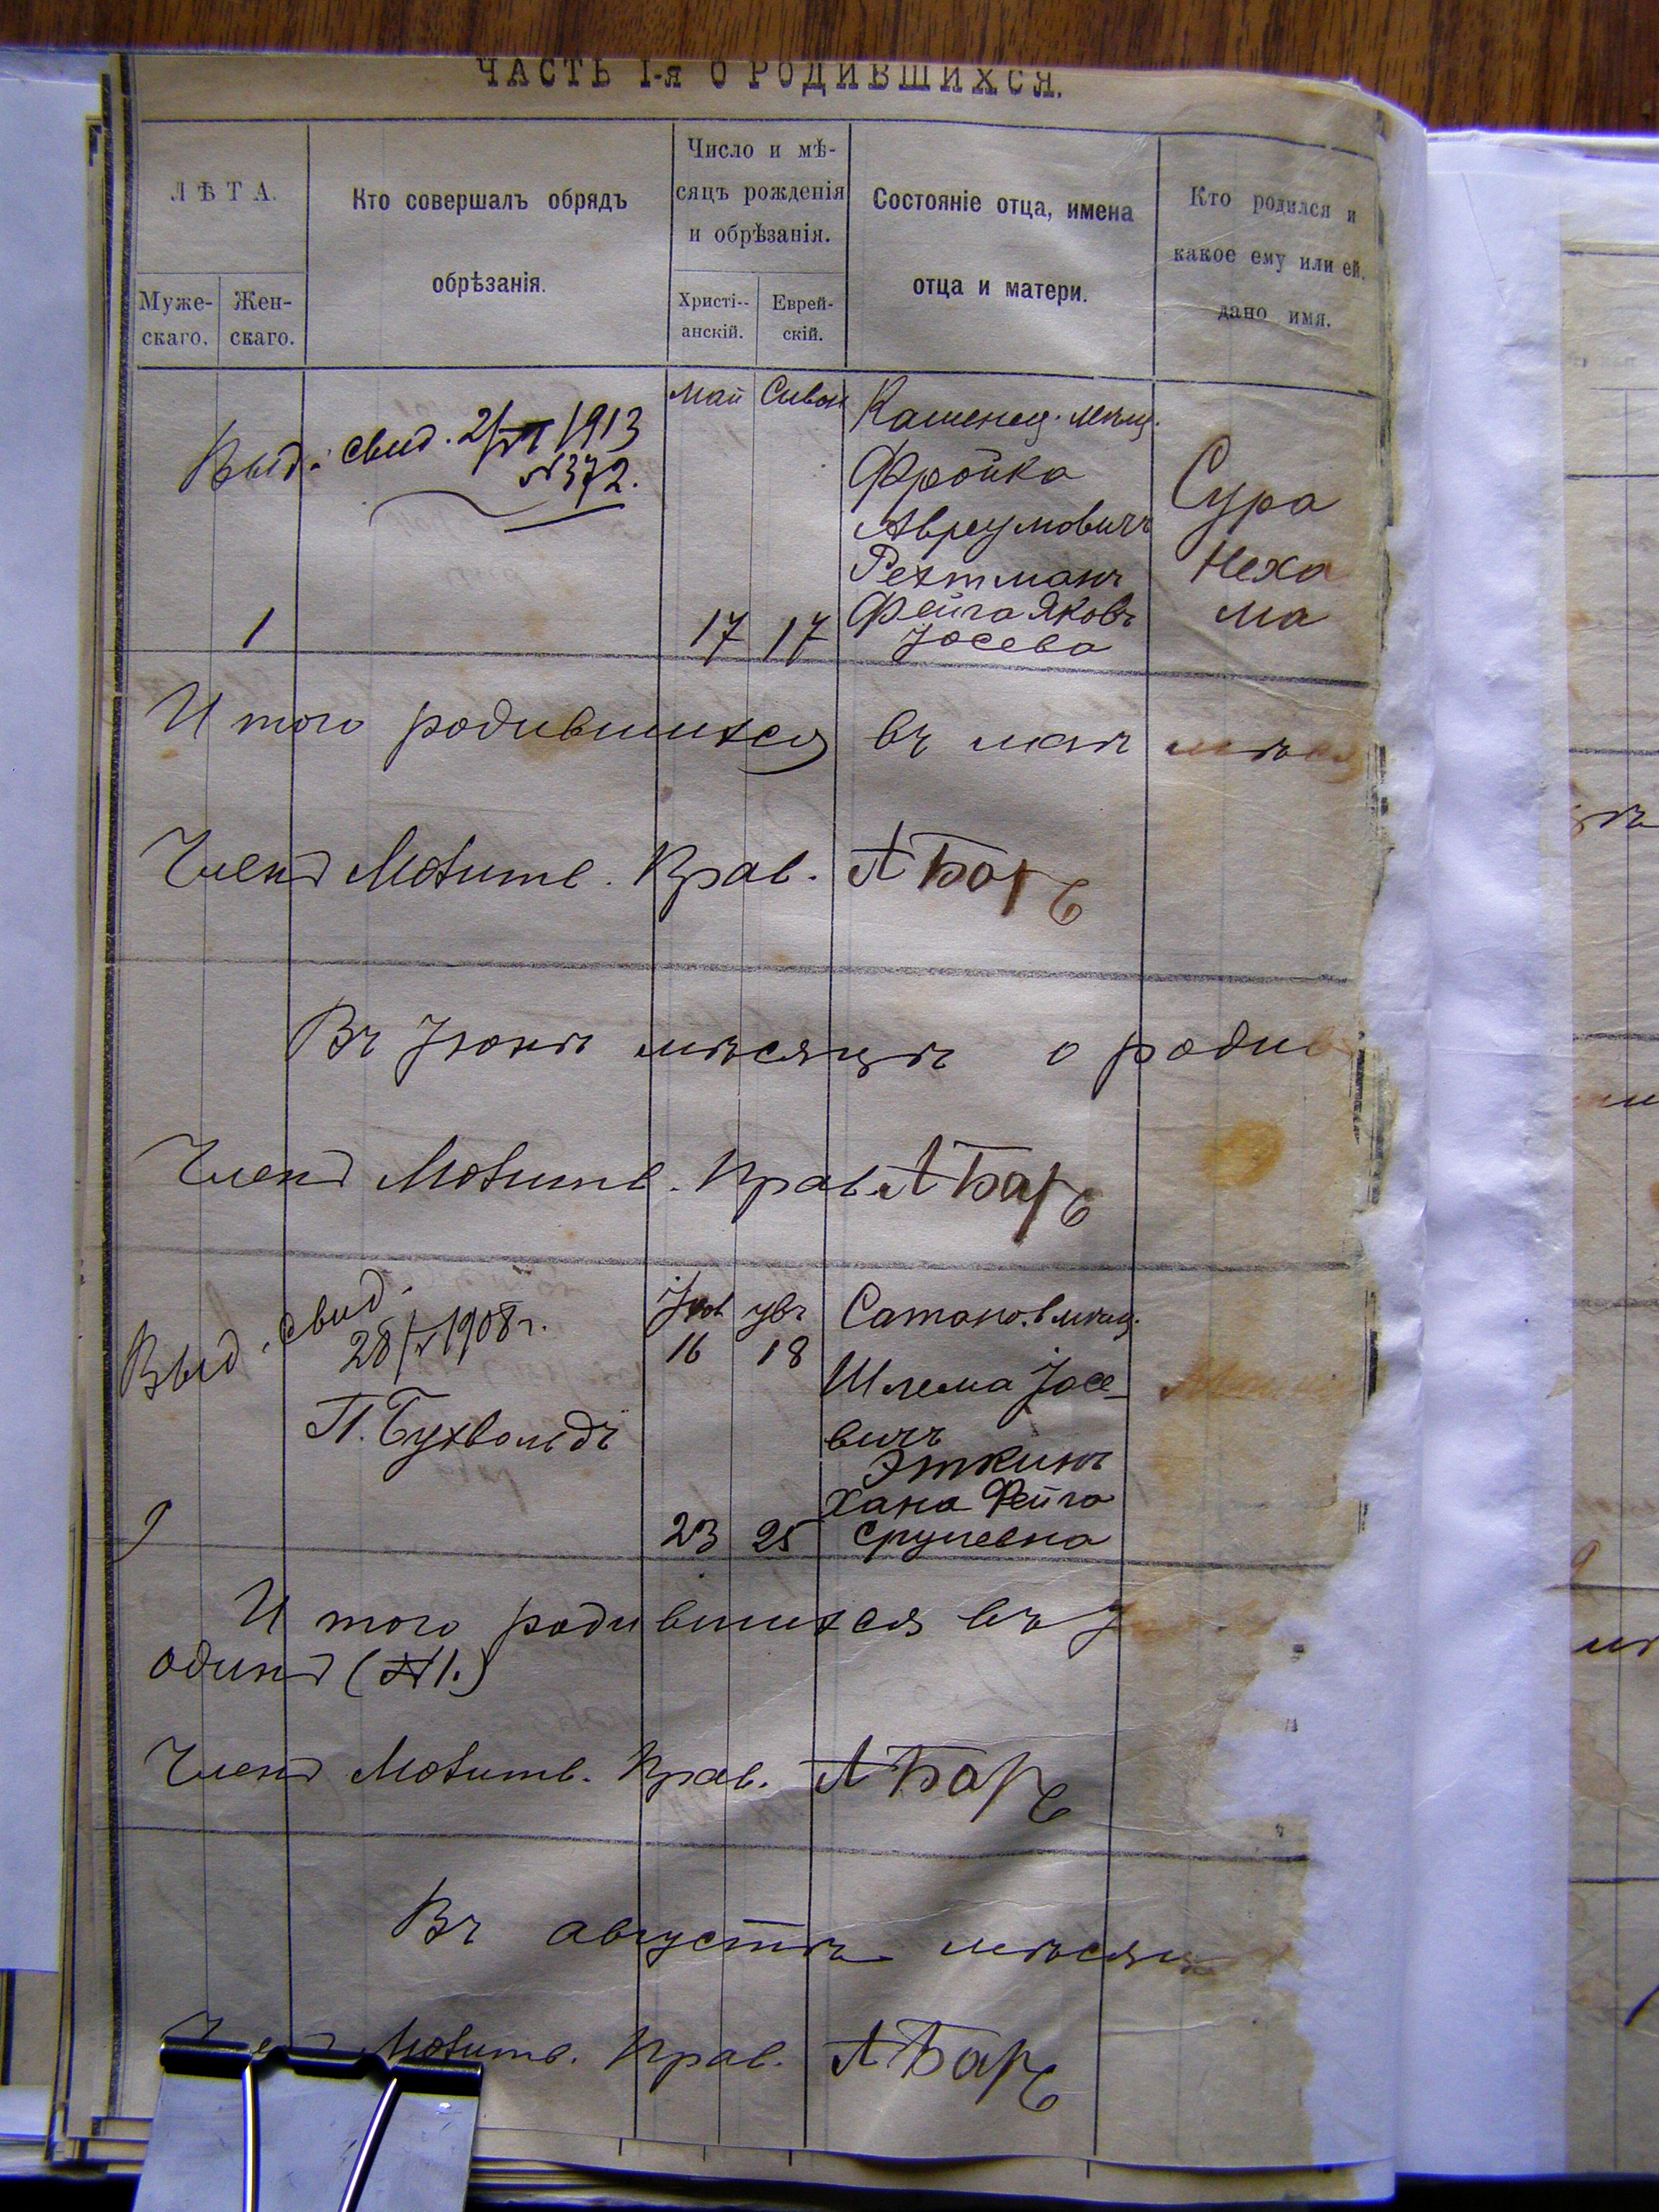 ЧАСТЬ I-я О РОДИВШИХСЯ.
ЛѢТА.
Муже-
скаго.
Жен-
скаго.
Кто совершалъ обрядъ
обрѣзанія.
Число и мѣ-
сяцъ рожденія
и обрѣзанія.
Христі-
анскій.
Еврей-
скій.
Состояніе отца, имена
отца и матери.
Кто родился и
какое ему или ей
дано имя.
Выд. свид. 2/VI 1913
№372.
1
Май
17
Сиван
17
Каменец. мѣщ.
Фройка
Аврумовичъ
Рехтманъ
Фейга Яковъ
Іосева
Сура
Неха
ма
Итого родившихся въ маѣ мѣся
Членъ Молитв. Прав. А Баръ
Въ Іюнѣ мѣсяцѣ о родив
Членъ Молитв. Прав. А Баръ
Выд. свид.
28/V 1908 г.
П. Бухвольдъ
9
Іюл
16
23
18
25
Сатанов. мѣщ.
Шлема Іосе-
вичъ
Эткинъ
Хана Фейга
Срулевна
Итого родившихся въ І
одинъ (№1.)
Членъ Молитв. Прав. А Баръ
Въ августѣ мѣсяц
Молитв. Прав. А Баръ